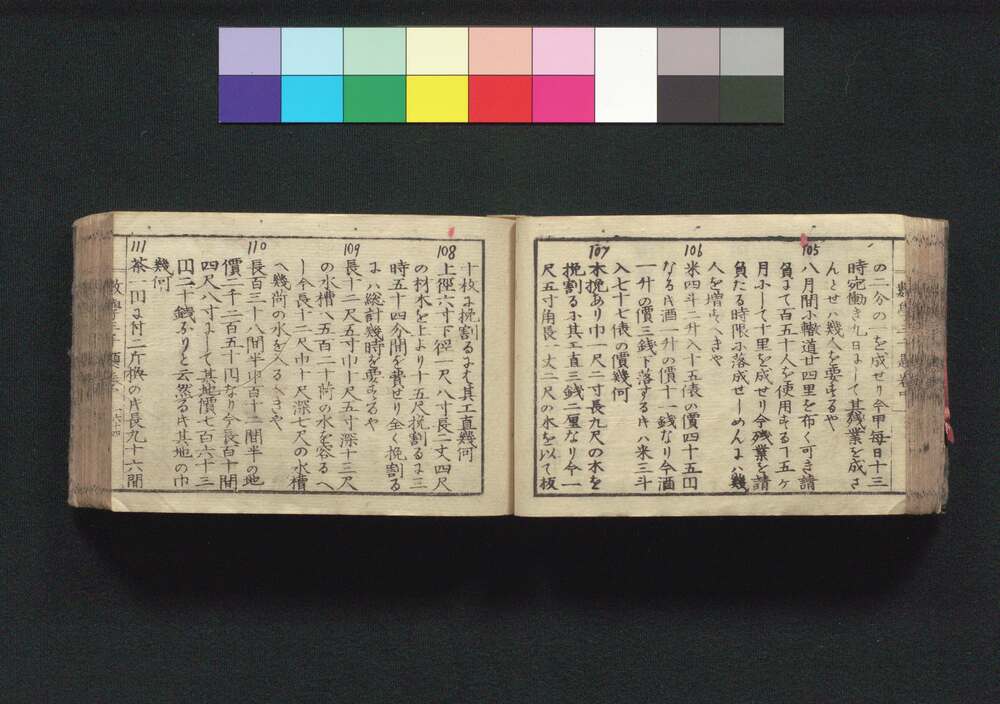 の二分の一を成せり今甲毎日十三
時宛働き九日にして其残業を成さ
んとせハ幾人を要するや
105
八月間ニ轍道廿四里を布く可き請
負にて百五十人を使用するて五ヶ
月ニして十里を成せり今残業を請
負たる時限ニ落成せしめんにハ幾
人を増すへきや
106
米四斗二升入十五俵の價四十五円
なる㐅酒一升の價十一銭なり今酒
一升の價三銭下落する㐅ハ米三斗
入七十七俵の價幾何
107
木挽あり巾一尺二寸長九尺の木を
挽割るに其工直三銭二厘なり今一
尺五寸角長一丈二尺の木を以て板
十枚に挽割るにハ其工直幾何
108
上徑六寸下徑一尺八寸長二丈四尺
の材木を上より十五尺挽割るに三
時五十四分間を費せり全く挽割る
にハ總計幾時を要するや
109
長十二尺五寸巾十尺五寸深十三尺
の水槽ハ五百二十荷の水を容るへ
し今長十二尺巾十尺深七尺の水槽
へ幾荷の水を入るへきや
110
長百三十八間半巾百十二間半の地
價二千二百五十円なり今長百十間
四尺八寸にして其地價七百六十三
円二十銭なりと云然る㐅其地の巾
幾何
111
茶一円に付二斤換の㐅長九十六間